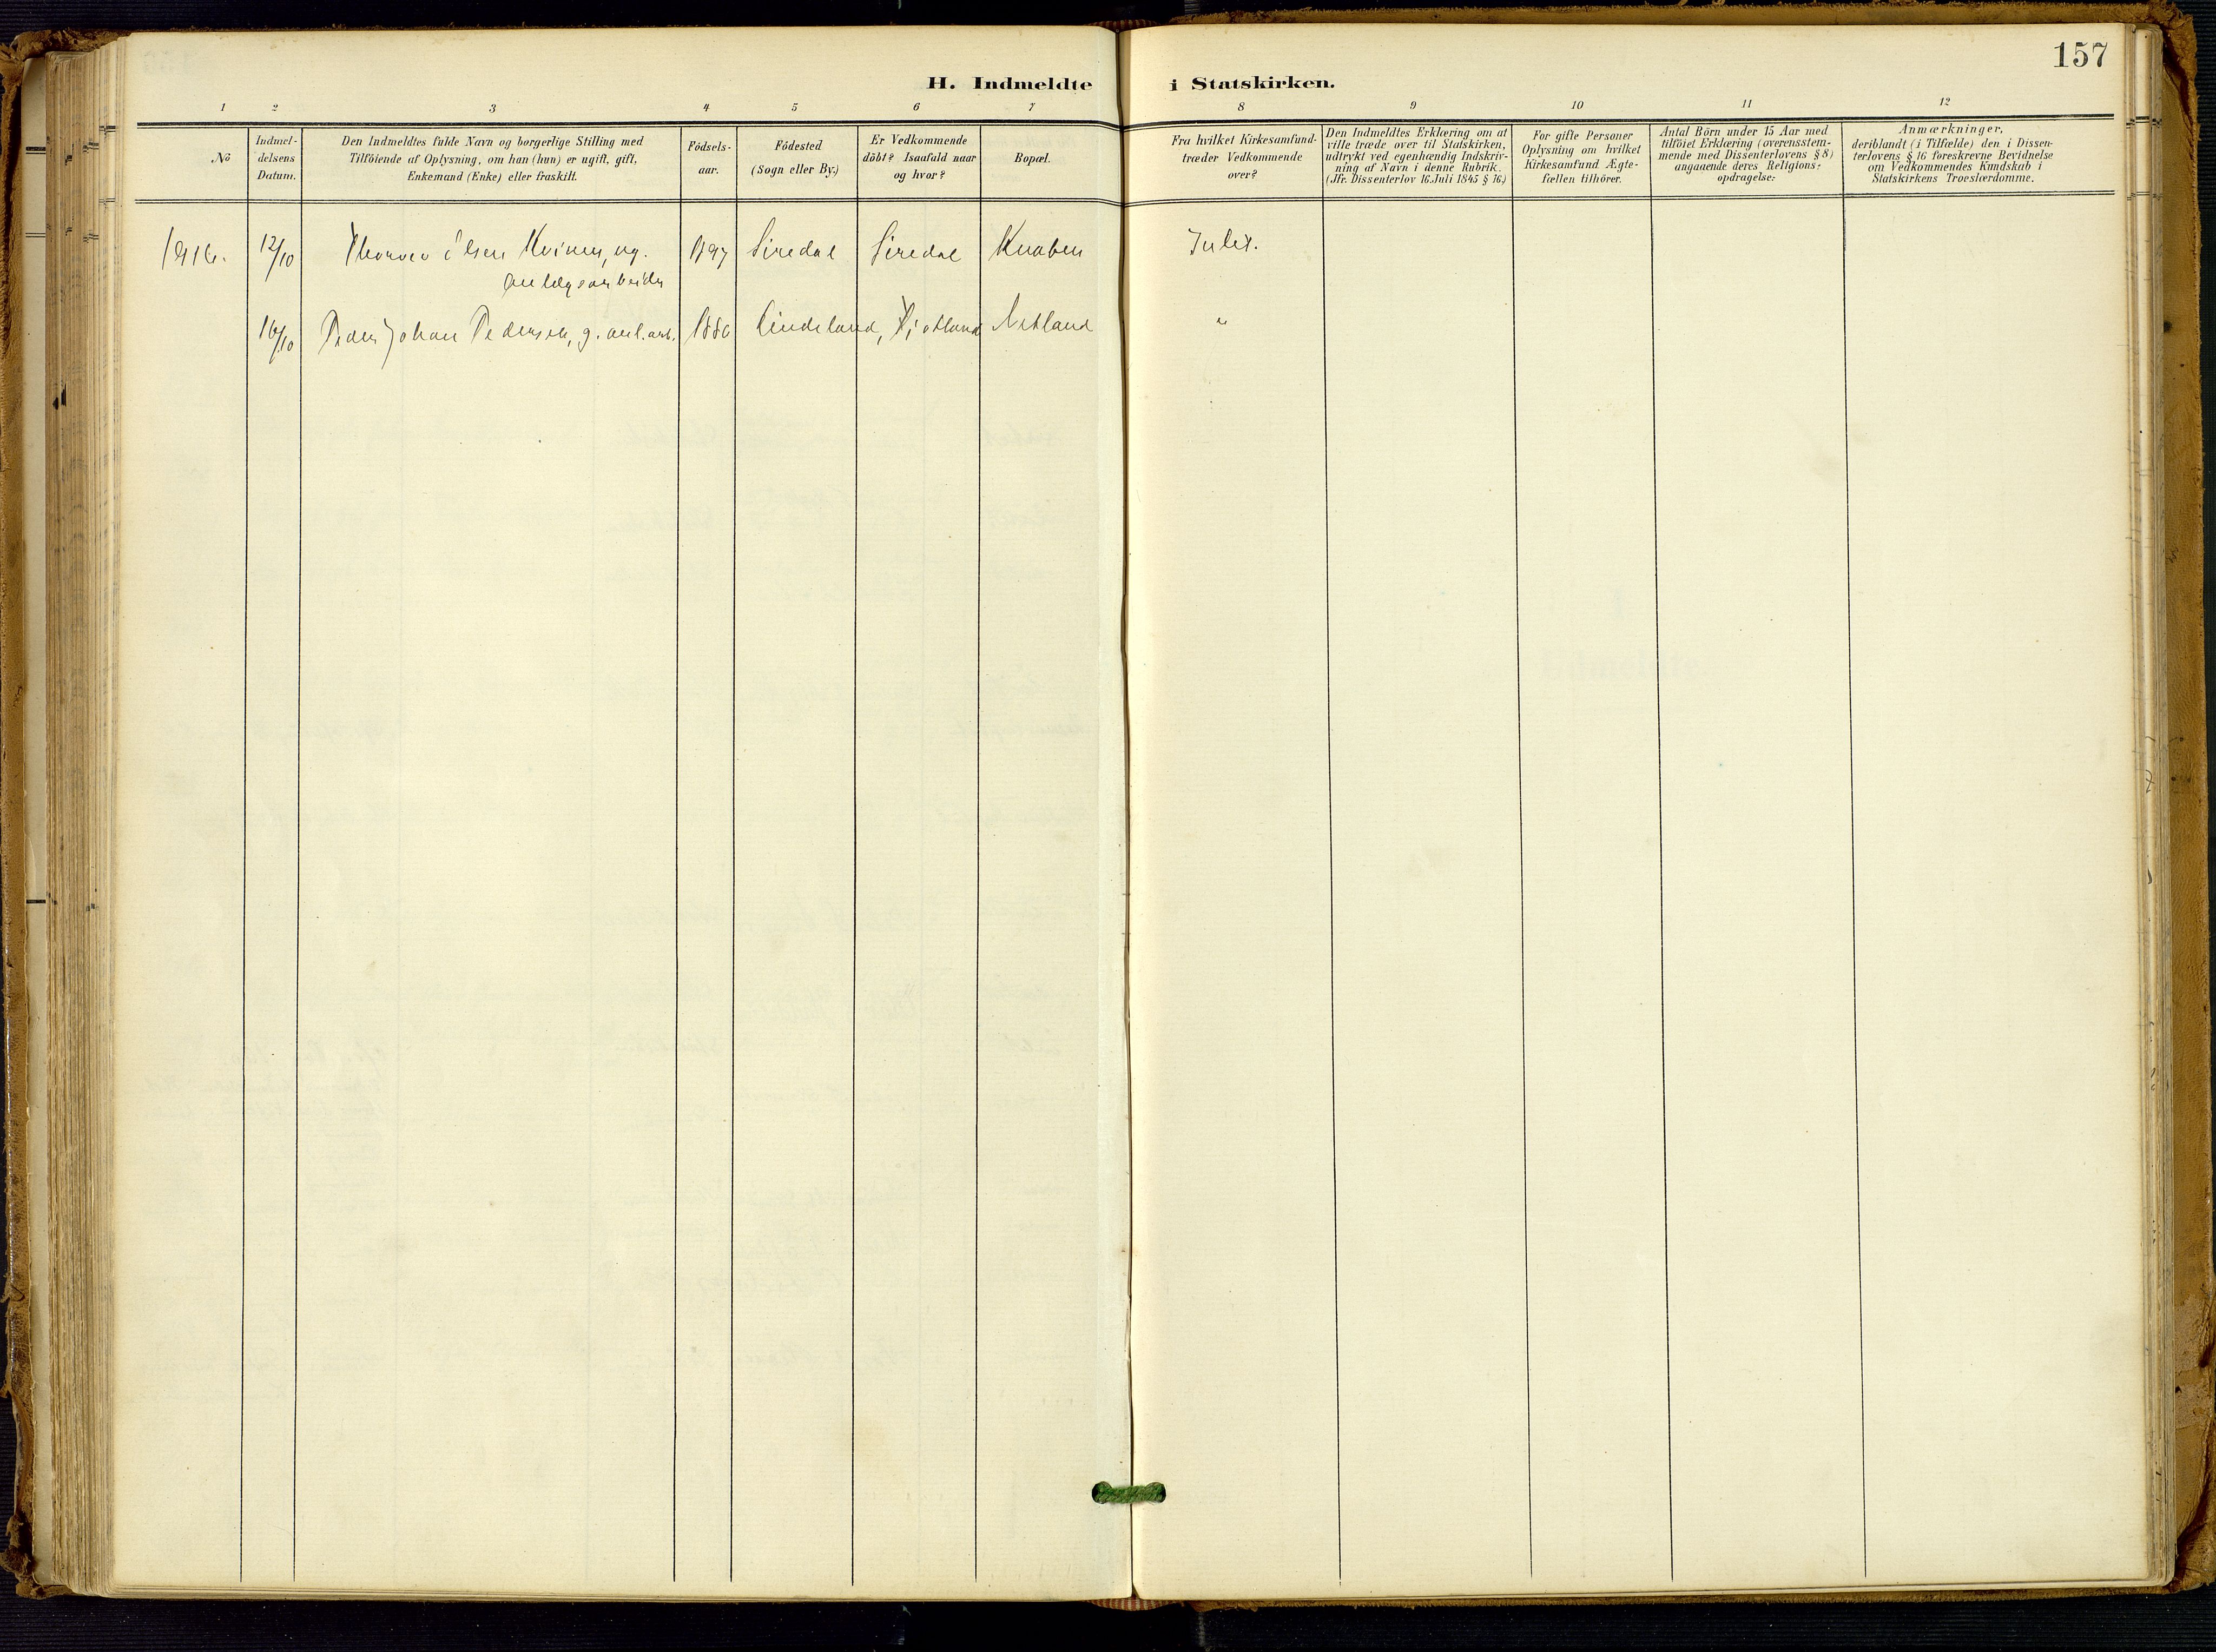 157
H. Indmeldte i Statskirken.
1 2 3 4 5 6 7 8 9 10 11 12
No
Indmel-
delsens
Datum.
Den Indmeldtes fulde Navn og borgerlige Stilling med
Tilföiende af Oplysning, om han (hun) er ugift, gift,
Enkemand (Enke) eller fraskilt.
Födsels-
aar.
Födested
(Sogn eller By.)
Er Vedkommende
döbt? Isaafald naar
og hvor?
Bopæl.
Fra hvilket Kirkesamfund
træder Vedkommende
over?
Den Indmeldtes Erklæring om at
ville træde over til Statskirken,
udtrykt ved egenhændig Indskriv-
ning af Navn i denne Rubrik.
(Jfr. Dissenterlov 16.Juli 1845 § 16.)
For gifte Personer
Oplysning om hvilket
Kirkesamfund Ægte-
fællen tilhörer.
Antal Börn under 15 Aar med
tilföiet Erklæring (overensstem-
mende med Dissenterlovens § 8)
angaaende deres Religions-
opdragelse:
Anmærkninger,
deriblandt (i Tilfælde) den i Dissen-
terlovens § 16 foreskrevne Bevidnelse
om Vedkommendes Kundskab i
Statskirkens Troeslærdomme.
1916. 12/10 Olsen Kvinen, ug. 1897 Siredal Siredal Knaben
anlægsarbeider
16/10 Peder Johan Pedersen, g. anl.arb. 1886 Lindeland, Tjotland Netland "